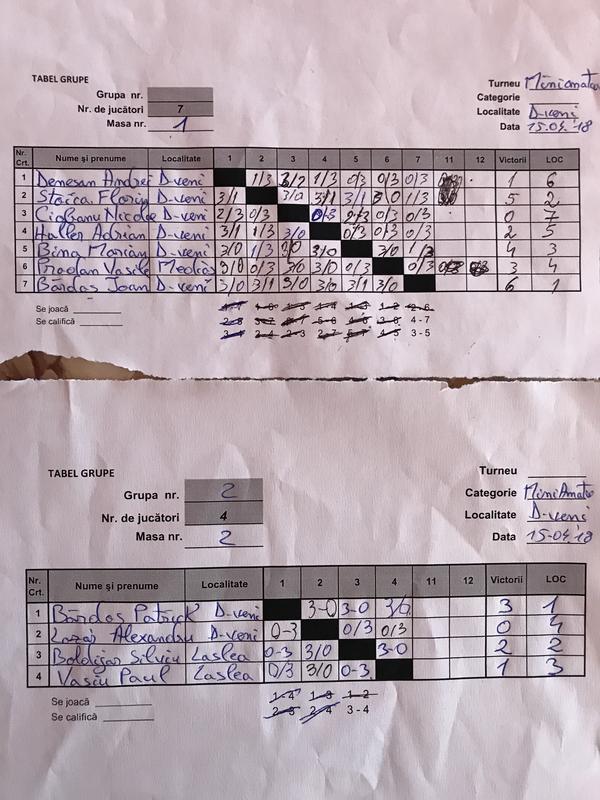 TABEL GRUPE
Turneu Miniamatu
Grupa nr.
Categorie
Nr. de jucători 7
Localitate D-veni
Masa nr. 1
Data 15.04.'18
Nr. Crt. Nume și prenume Localitate 1 2 3 4 5 6 7 11 12 Victorii LOC
1 Denesan Andrei D-veni 1/3 3/2 1/3 0/3 0/3 0/3 1 6
2 Stoica Florin D-veni 3/1 3/0 3/1 3/1 3/0 1/3 5 2
3 Ciobanu Nicolae D-veni 2/3 0/3 0/3 0/3 0/3 0 7
4 Haller Adrian D-veni 3/1 1/3 3/0 0/3 0/3 0/3 2 5
5 Bina Marian D-veni 3/0 1/3 3/0 3/0 1/3 4 3
6 Vasile Medias 3/0 0/3 3/0 3/0 0/3 0/3 3 4
7 Bardos Joan D-veni 3/0 3/1 3/0 3/0 3/1 3/0 6 1
Se joacă
Se califică
4-7
3-5
TABEL GRUPE
Turneu
Grupa nr. 2
Categorie MiniAmatu
Nr. de jucători 4
Localitate D-veni
Masa nr. 2
Data 15-04'18
Nr. Crt. Nume și prenume Localitate 1 2 3 4 11 12 Victorii LOC
1 Bărdos Patrick D-veni 3-0 3-0 3/0 3 1
2 Lazar Alexandru D-veni 0-3 0/3 0/3 0 4
3 Boldijar Silviu Laslea 0-3 3/0 3-0 2 2
4 Vasiu Paul Laslea 0/3 3/0 0-3 1 3
Se joacă 1-4 1-3 1-2
Se califică 2-3 2-4 3-4